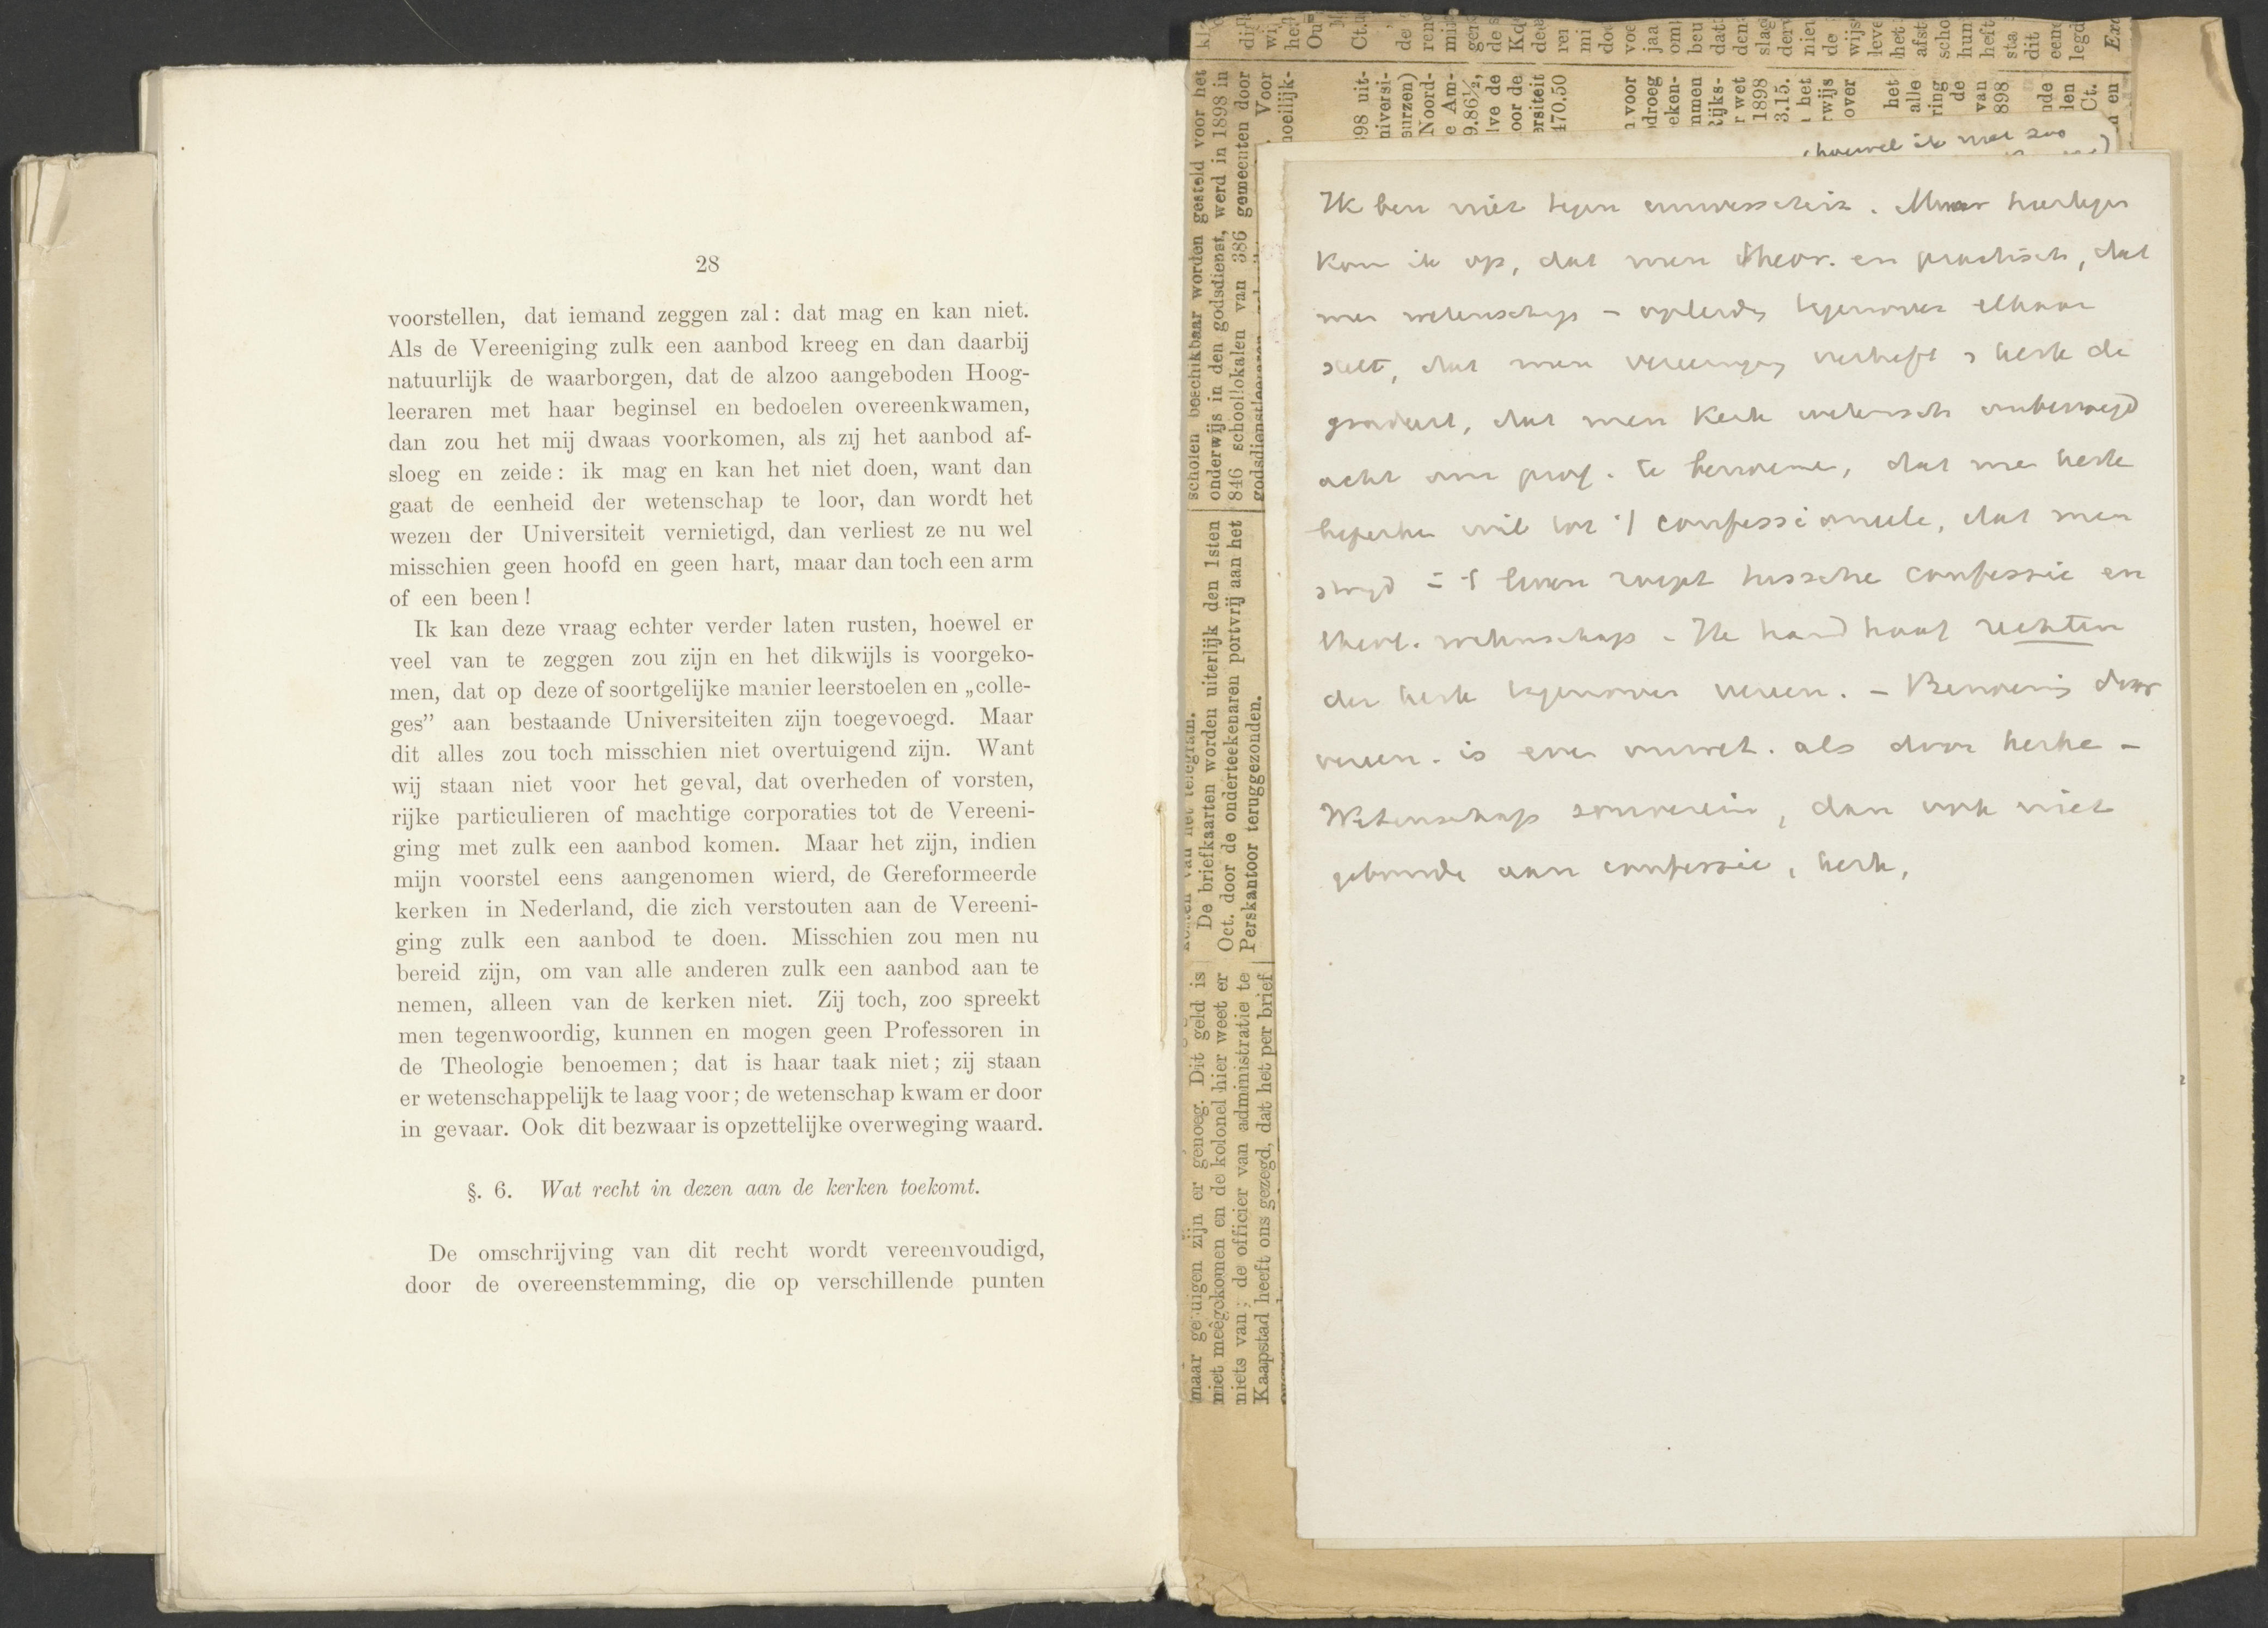 28
voorstellen, dat iemand zeggen zal: dat mag en kan niet.
Als de Vereeniging zulk een aanbod kreeg en dan daarbij
natuurlijk de waarborgen, dat de alzoo aangeboden Hoog-
leeraren met haar beginsel en bedoelen overeenkwamen,
dan zou het mij dwaas voorkomen, als zij het aanbod af-
sloeg en zeide: ik mag en kan het niet doen, want dan
gaat de eenheid der wetenschap te loor, dan wordt het
wezen der Universiteit vernietigd, dan verliest ze nu wel
misschien geen hoofd en geen hart, maar dan toch een arm
of een been!
Ik kan deze vraag echter verder laten rusten, hoewel er
veel van te zeggen zou zijn en het dikwijls is voorgeko-
men, dat op deze of soortgelijke manier leerstoelen en „colle-
ges” aan bestaande Universiteiten zijn toegevoegd. Maar
dit alles zou toch misschien niet overtuigend zijn. Want
wij staan niet voor het geval, dat overheden of vorsten,
rijke particulieren of machtige corporaties tot de Vereeni-
ging met zulk een aanbod komen. Maar het zijn, indien
mijn voorstel eens aangenomen wierd, de Gereformeerde
kerken in Nederland, die zich verstouten aan de Vereeni-
ging zulk een aanbod te doen. Misschien zou men nu
bereid zijn, om van alle anderen zulk een aanbod aan te
nemen, alleen van de kerken niet. Zij toch, zoo spreekt
men tegenwoordig, kunnen en mogen geen Professoren in
de Theologie benoemen; dat is haar taak niet; zij staan
er wetenschappelijk te laag voor; de wetenschap kwam er door
in gevaar. Ook dit bezwaar is opzettelijke overweging waard.
§. 6. Wat recht in dezen aan de kerken toekomt.
De omschrijving van dit recht wordt vereenvoudigd,
door de overeenstemming, die op verschillende punten
scholen beschikbaar worden gesteld voor het
onderwijs in den godsdienst, werd in 1898 in
846 schoollokalen van 386 gemeenten door
De briefkaarten worden uiterlijk den 1sten
Oct. door de onderteekenaren portvrij aan het
Perskantoor teruggezonden.
maar getuigen zijn er genoeg. Dit geld is
niet meêgekomen en de kolonel hier weet er
niets van; de officier van administratie te
Kaapstad heeft ons gezegd, dat het per brief
(hoewel ik niet zoo
Ik ben niet tegen . Maar hiertegen
kom ik op, dat men theor. en practisch, dat
men wetenschap - opleidg tegenover elkaar
stelt, dat men vereenigg verheft & kerk de
gradeert, dat men Kerk wetensch onbevoegd
acht om prof. te benoemen, dat men kerk
beperken wil tot 't confessioneele, dat men
strijd in 't leven roept tusschen confessie en
theol. wetenschap - Ik handhaaf rechten
der kerk tegenover vereen. - Benoemg door
vereen. is even onwet. als door kerke -
Wetenschap souverein, dan ook niet
gebonde aan confessie, kerk,